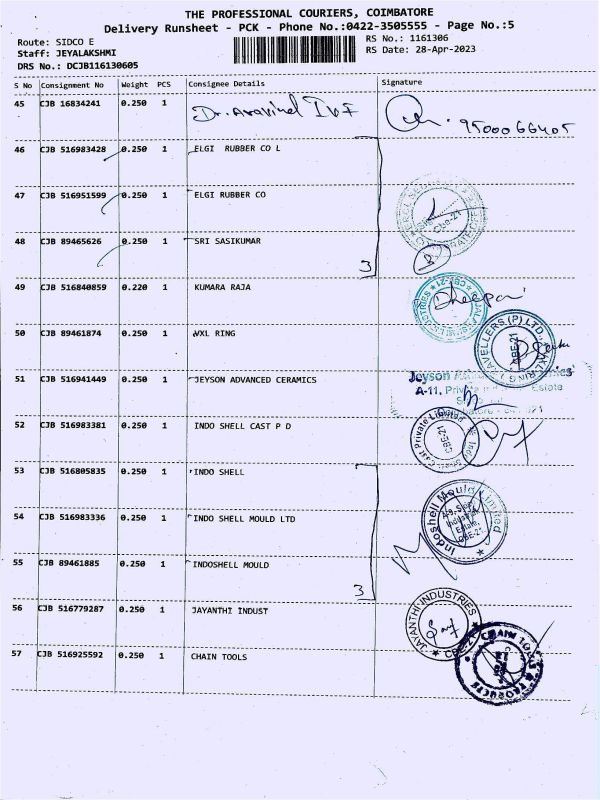 THE PROFESSIONAL COURIERS, COIMBATORE
Delivery Runsheet - PCK - Phone No.:0422-3505555 - Page No.:5
Route: SIDCO E RS No.: 1161306
Staff: JEYALAKSHMI RS Date: 28-Apr-2023
DRS No.: DCJB116130605
S No Consignment No Weight PCS Consignee Details Signature
45 CJB 16834241 0.250 1 Dr. Aravind IVF 9500066405
46 CJB 516983428 0.250 1 ELGI RUBBER CO L
47 CJB 516951599 0.250 1 ELGI RUBBER CO
Cbe-21
48 CJB 89465626 0.250 1 SRI SASIKUMAR
3
49 CJB 516840859 0.220 1 KUMARA RAJA
50 CJB 89461874 0.250 1 VXL RING
CBE-21
51 CJB 516941449 0.250 1 JEYSON ADVANCED CERAMICS
Jeyson
A-11, Estate
52 CJB 516983381 0.250 1 INDO SHELL CAST P D
CBE-21
53 CJB 516805835 0.250 1 INDO SHELL
54 CJB 516983336 0.250 1 INDO SHELL MOULD LTD
Indoshell Mould Limited
Estate,
CBE-21
55 CJB 89461885 0.250 1 INDOSHELL MOULD
3
56 CJB 516779287 0.250 1 JAYANTHI INDUST
JAYANTHI INDUSTRIES
57 CJB 516925592 0.250 1 CHAIN TOOLS
CHAIN TOOLS & PRODUCTS